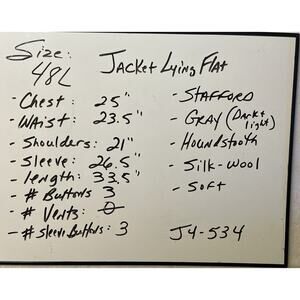 Size: 48L
Jacket Lying Flat
- Chest: 25"
- Waist: 23.5"
- Shoulders: 21"
- Sleeve: 26.5"
- length: 33.5"
- # Buttons 3
- # Vents: 0
- # Sleeve Buttons: 3
- Stafford
- Gray (Dark & light)
- Houndstooth
- Silk-Wool
- Soft
J4-534